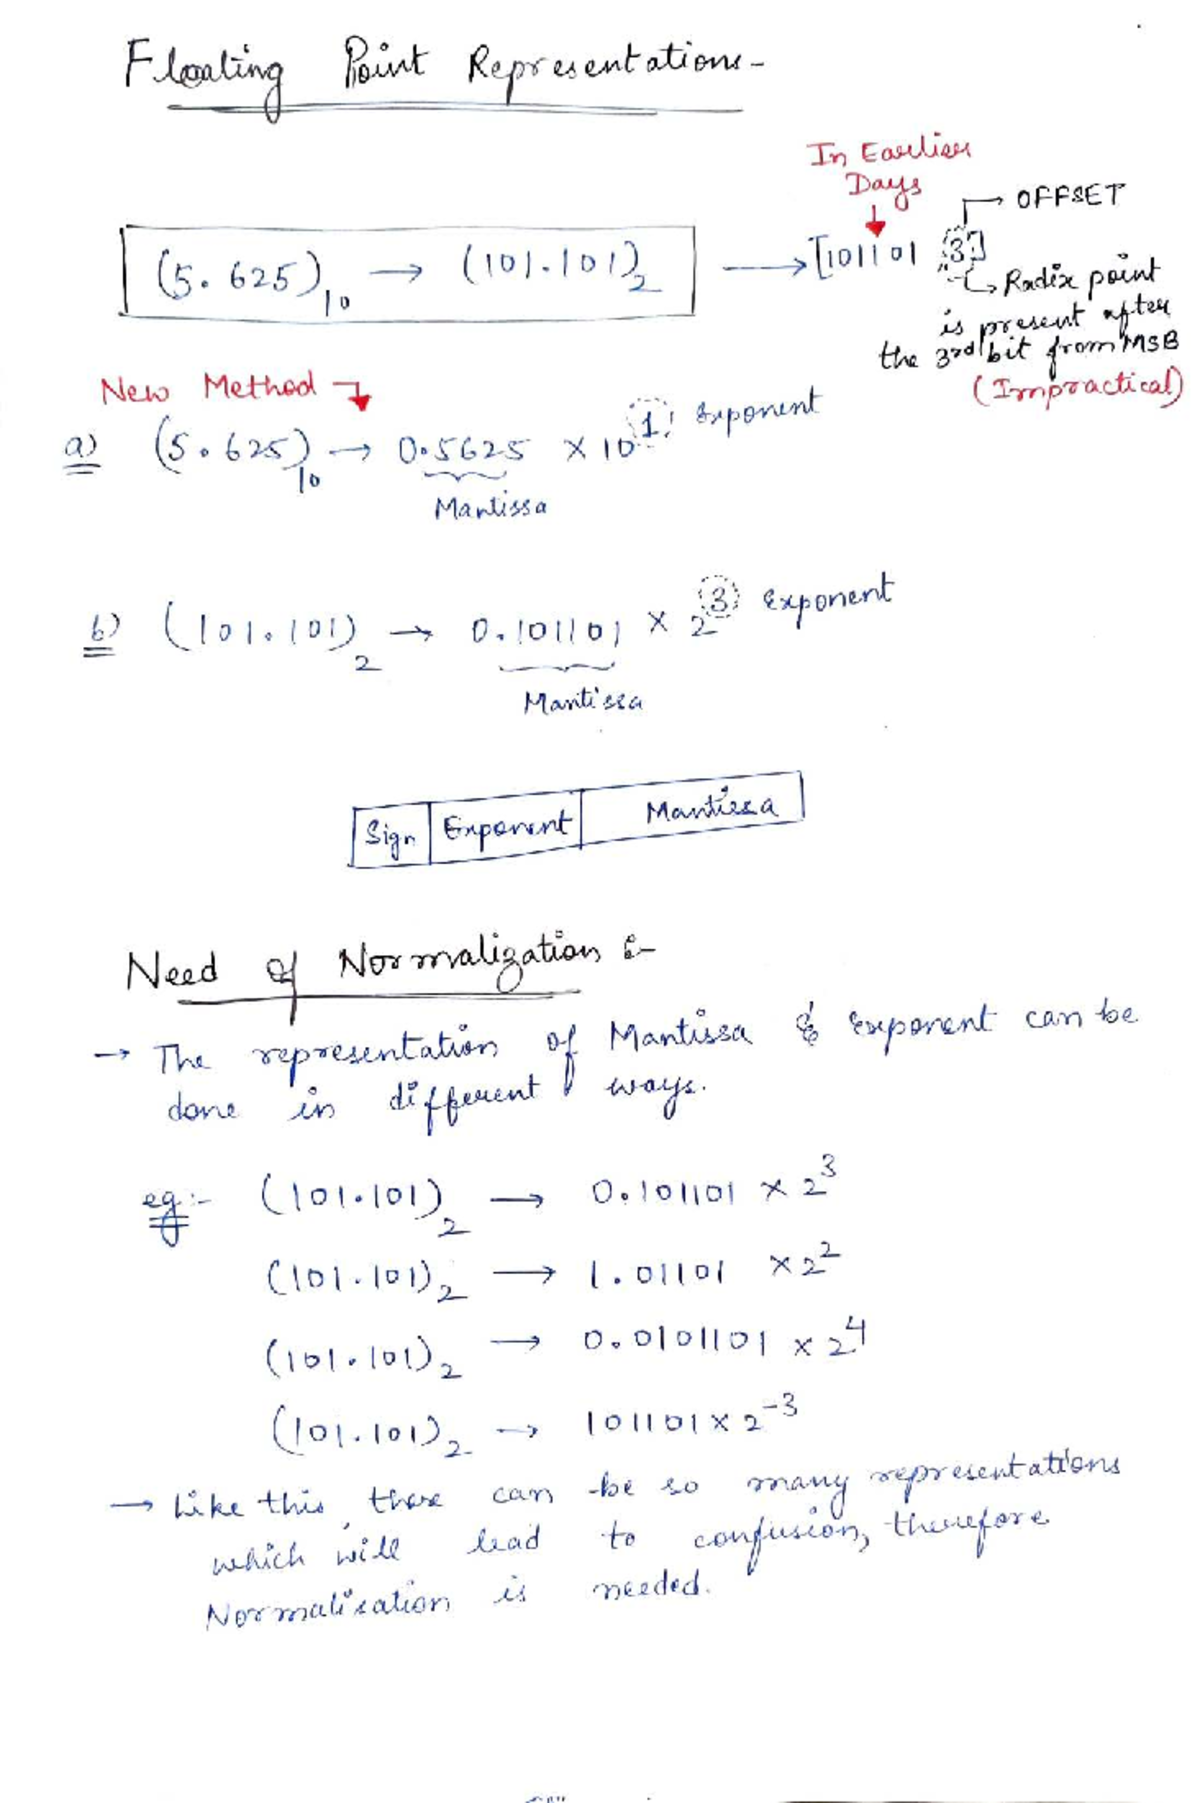 Floating Point Representations-
In Earlier
Days
OFFSET
(5.625)10 → (101.101)2 → [101101 3]
Radix point
is present after
the 3rd bit from MSB
(Impractical)
New Method
a) (5.625)10 → 0.5625 × 10^1 Exponent
Mantissa
b) (101.101)2 → 0.101101 × 2^3 Exponent
Mantissa
Sign Exponent Mantissa
Need of Normalization :-
→ The representation of Mantissa & Exponent can be
done in different ways.
eg:- (101.101)2 → 0.101101 × 2^3
(101.101)2 → 1.01101 × 2^2
(101.101)2 → 0.0101101 × 2^4
(101.101)2 → 101101 × 2^-3
→ Like this, there can be so many representations
which will lead to confusion, therefore
Normalisation is needed.